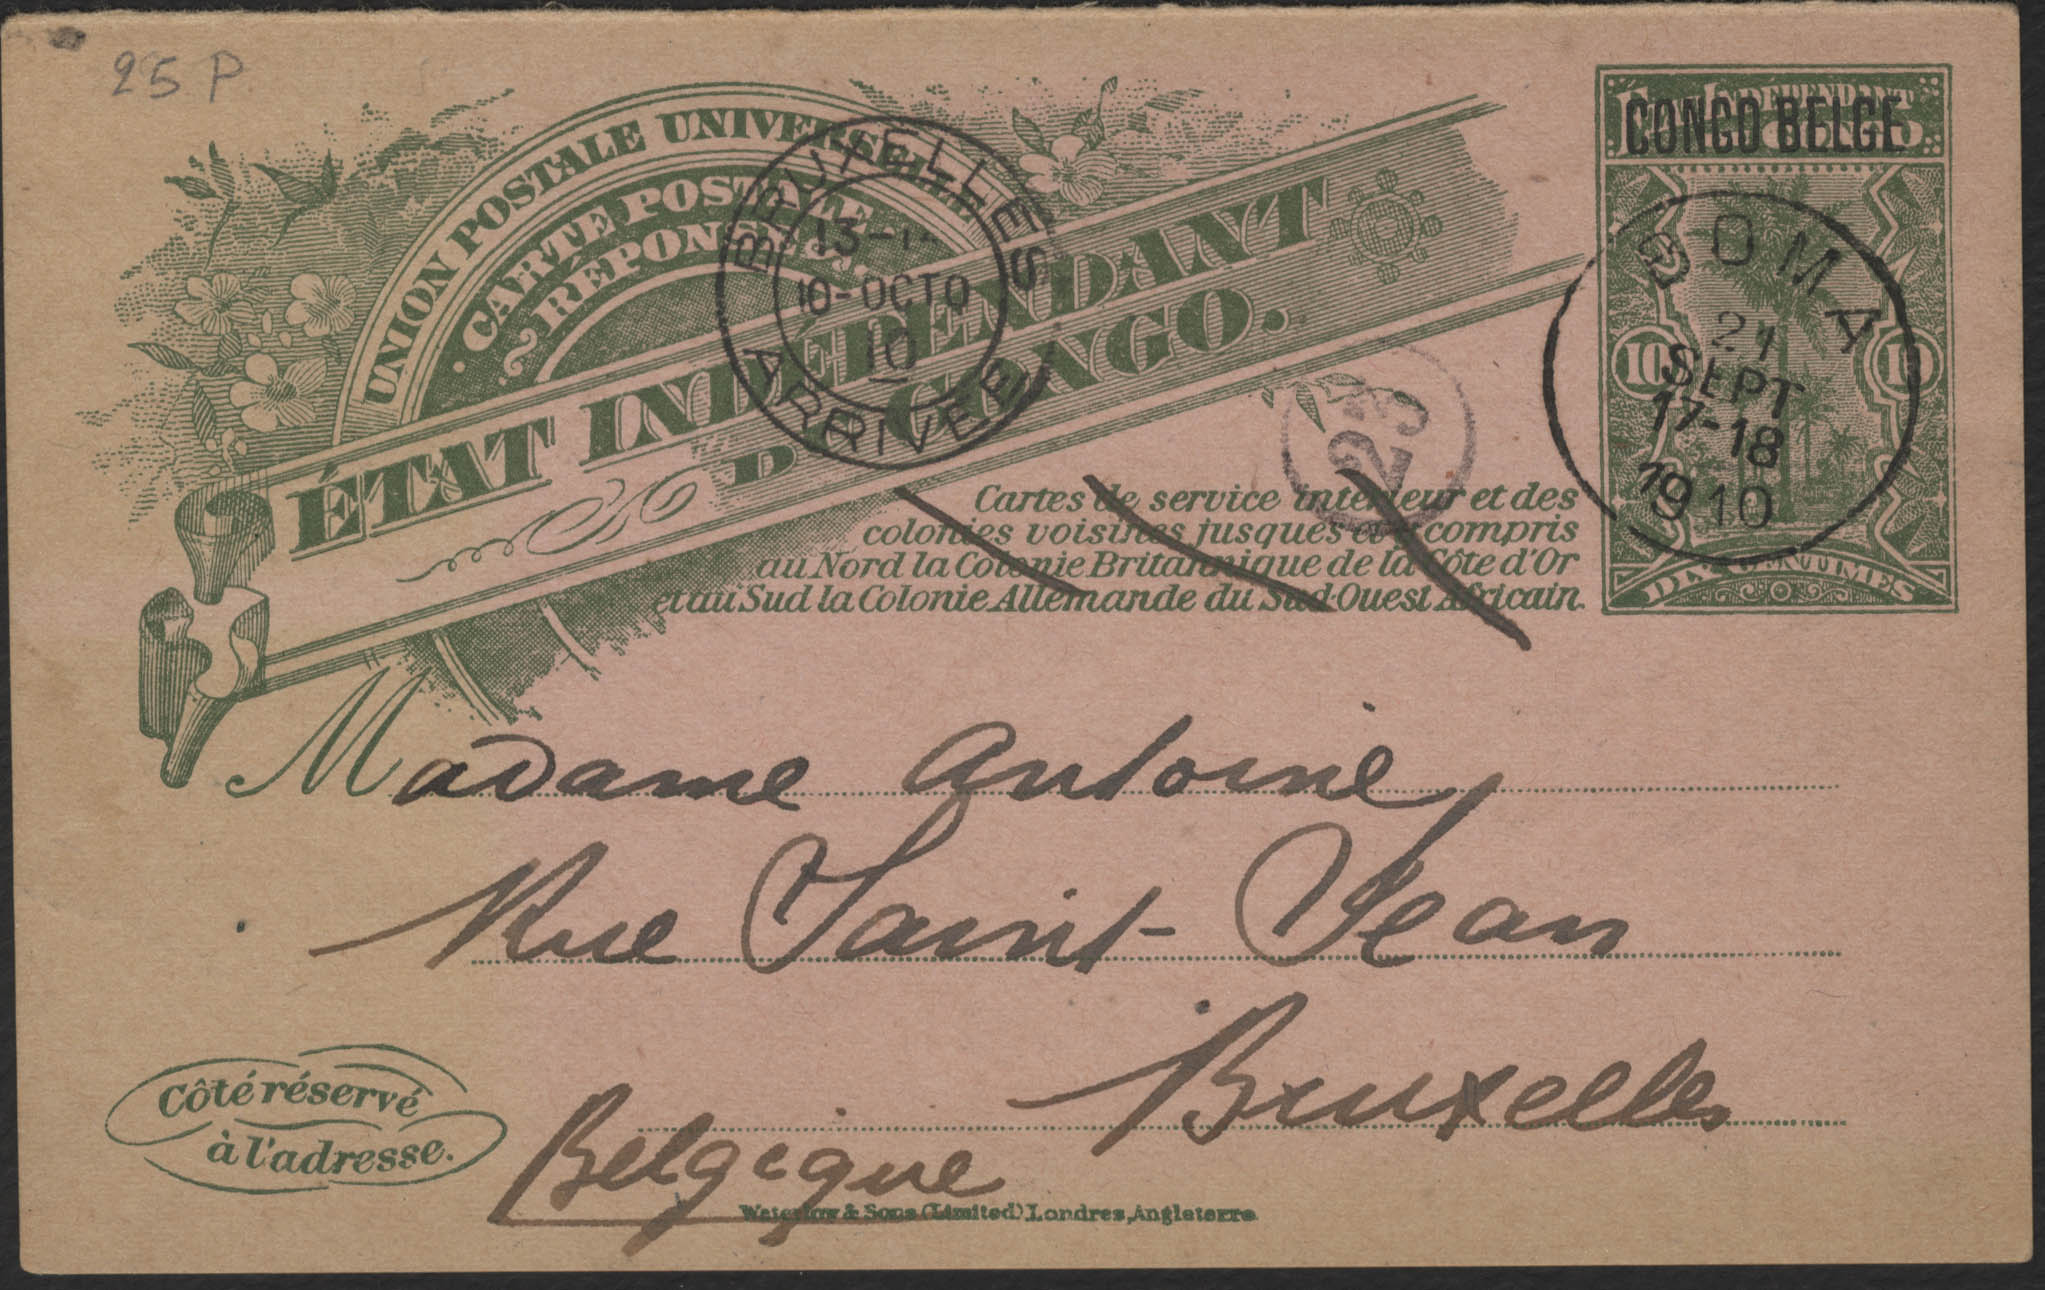 25 P
UNION POSTALE UNIVERSELLE
CARTE POSTALE
RÉPONSE.
ÉTAT INDÉPENDANT
DU CONGO.
BRUXELLES
13-1
10-OCTO
10
ARRIVÉE
23
ÉTAT INDÉPENDANT
DU CONGO
CONGO BELGE
10 10
DIX CENTIMES
BOMA
21
SEPT
17-18
1910
Cartes de service intérieur et des
colonies voisines jusques et y compris
au Nord la Colonie Britannique de la Côte d'Or
et au Sud la Colonie Allemande du Sud-Ouest Africain.
Madame Antoine
Rue Saint-Jean
Bruxelles
Belgique
Côté réservé
à l'adresse.
Waterlow & Sons (Limited) Londres, Angleterre